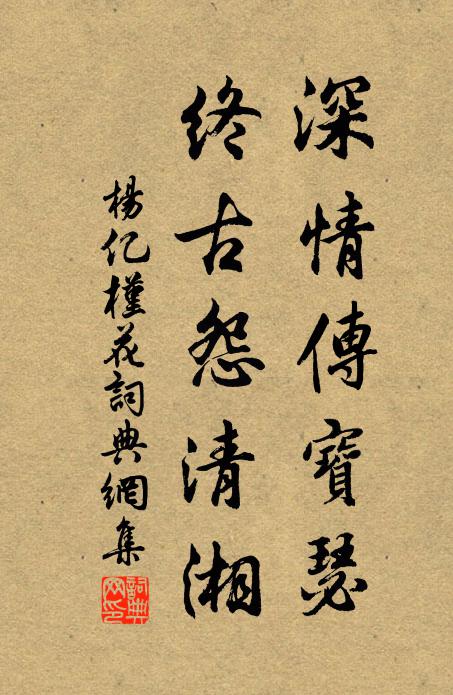 深情傳寶瑟
終古怨清湘
楊亿槿花詞典網集
詞典网印